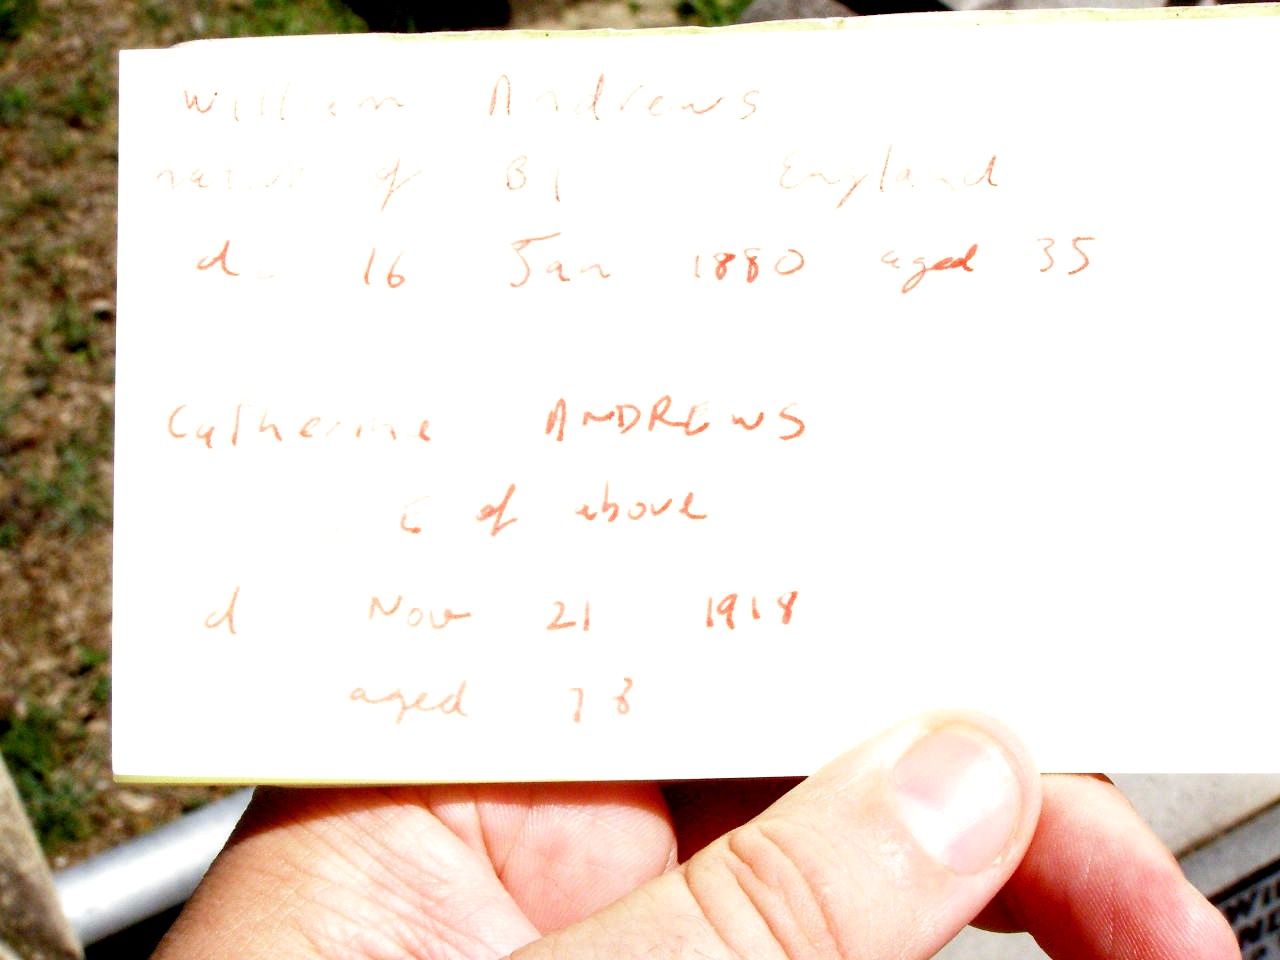 William Andrews
native of England
d 16 Jan 1880 aged 35
Catherine ANDREWS
of above
d Nov 21 1918
aged 78